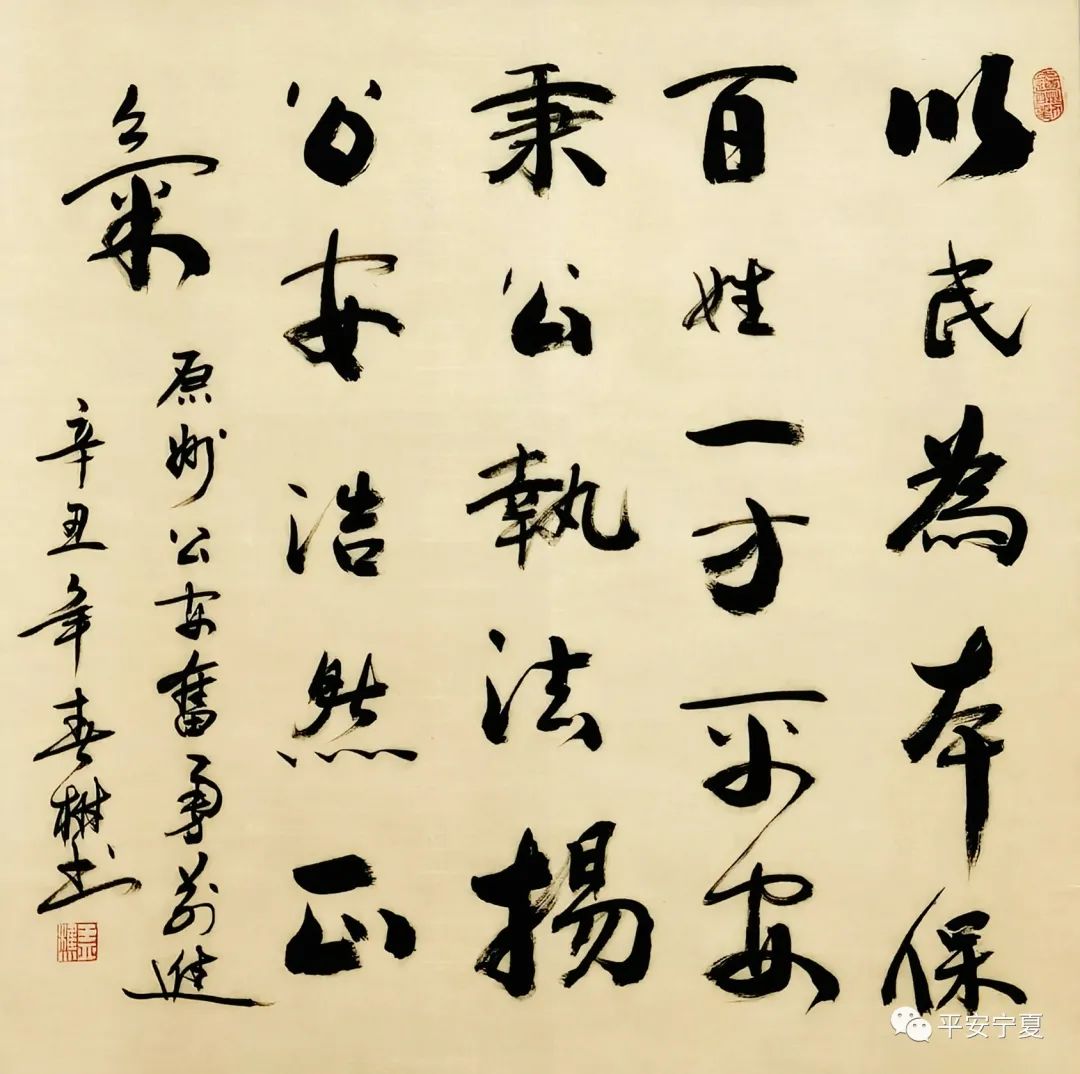 以民為本保
百姓一方平安
秉公執法揚
公安浩然正
氣
原州公安奮勇前進
辛丑年春樹書
平安宁夏